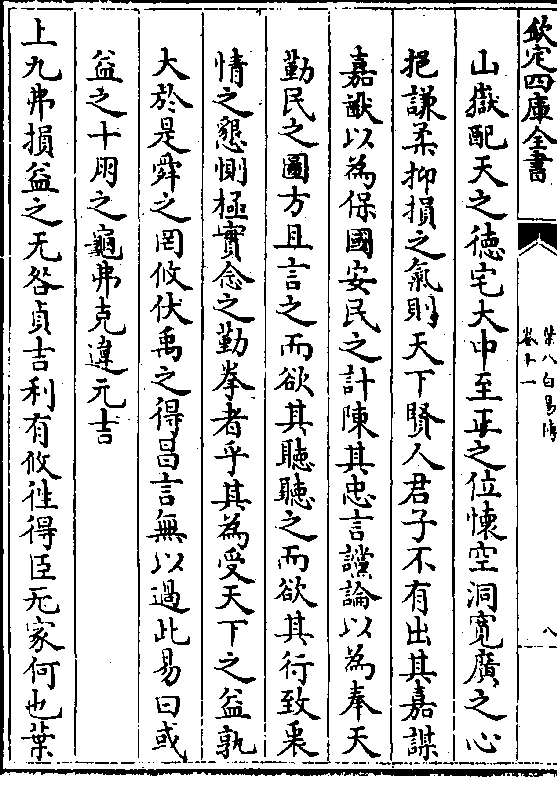 欽定四庫全書
葉八白易傳
卷十一
八
山嶽配天之德宅大中至正之位懐空洞寛廣之心
挹謙柔抑損之氣則天下賢人君子不有出其嘉謀
嘉猷以為保國安民之計陳其忠言讜論以為奉天
勤民之圖方且言之而欲其聽聽之而欲其行致釆
情之懇惻極實念之勤拳者乎其為受天下之益孰
大於是舜之罔攸伏禹之得昌言無以過此易曰或
益之十朋之龜弗克違元吉
上九弗損益之无咎貞吉利有攸徃得臣无家何也葉